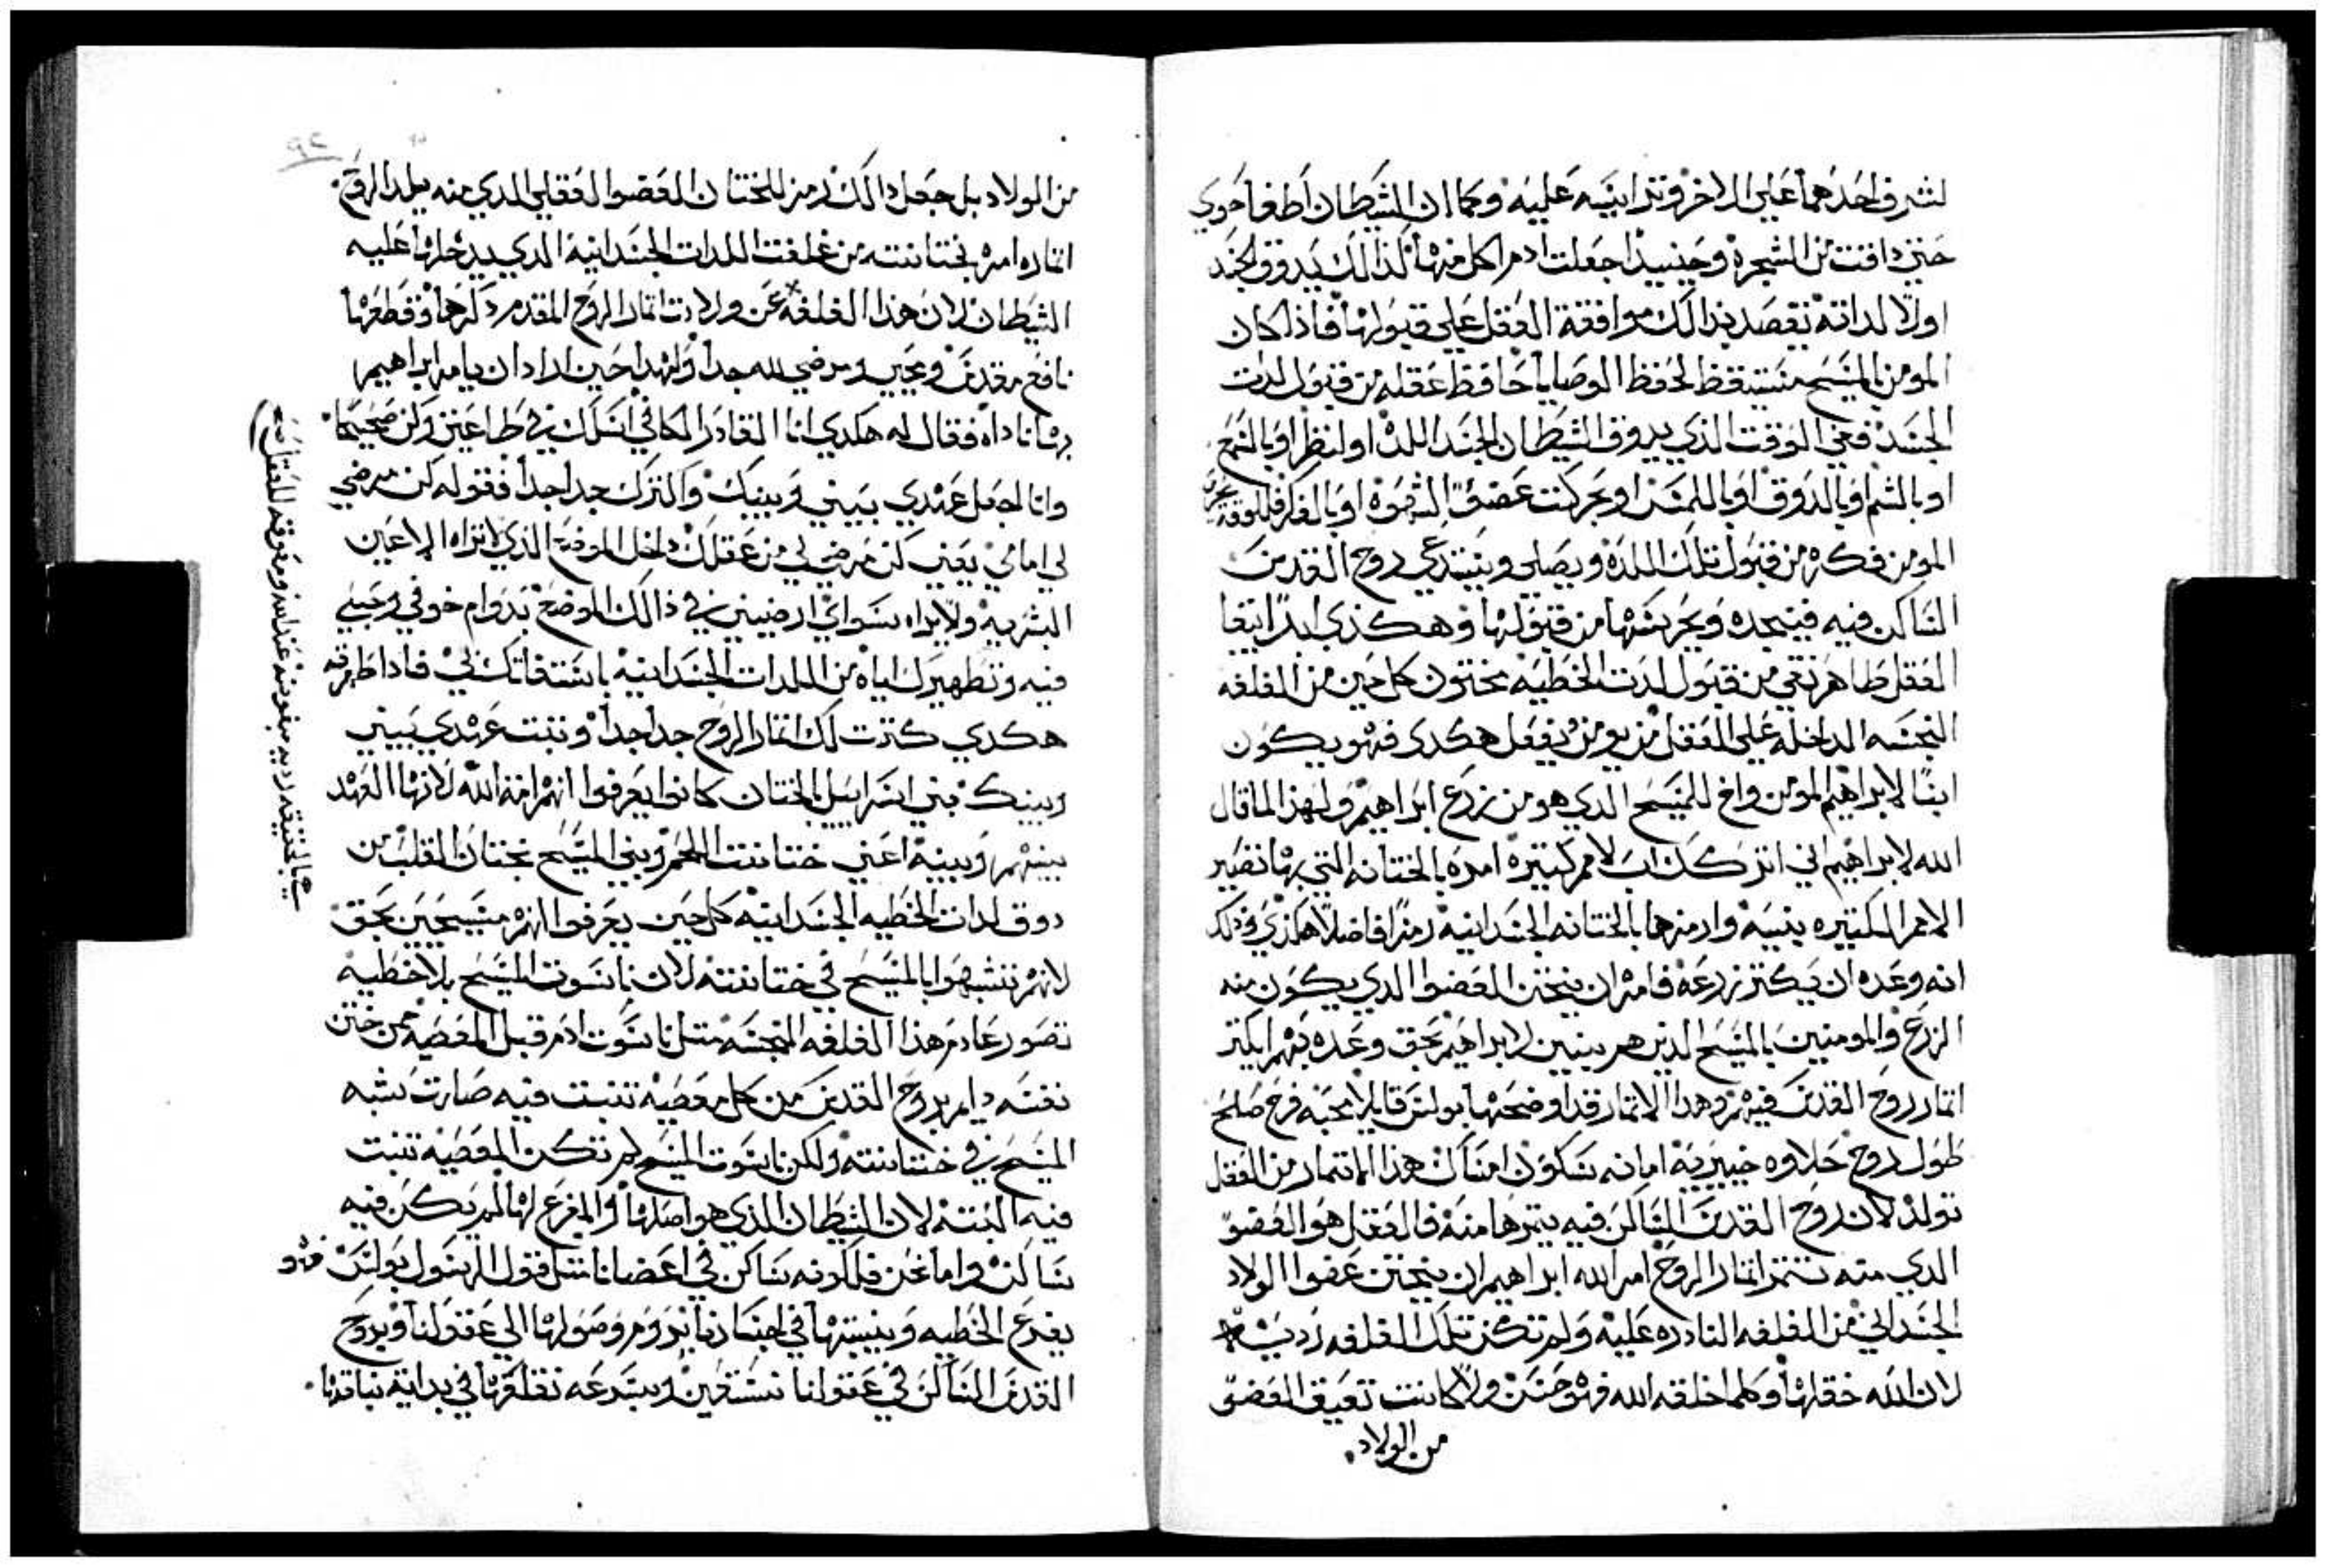 لشرف احدهما علي الاخر وتدابيسه عليه وكما ان الشيطان اطغا حوي
حتي داقت من الشجره وحينيدا جعلت ادم اكل منها كذالك يدوق الجسد
اولا لداته بقصد بذالك موافقة العقل علي قبولها فاذا كان
المومن بالمسيح متيقظ لحفظ الوصايا حافظ عقله من قبول لدت
الجسد ففي الوقت الذي يدوق الشيطان الجسد اللده او لنظر او بالسمع
او بالشم او بالدوق او باللمس او بحركت عضو الشهوه او بالفكر فللوقت
المومن فكره من قبول تلك اللده ويصلي ويستدعي روح القدس
الساكن فيه فينجده ويحرسها من قبولها وهكذي ابدا يبقا
العقل طاهر نقي من قبول لدت الخطيه مختون كل حين من الغلفه
النجسه الداخله علي العقل من يومن يفعل هكدي فهو يكون
ابنا لابراهيم المومن واخ للمسيح الدي هو من زرع ابراهيم ولهذا لما قال
الله لابراهيم اني اتركك اب لامم كتيره امره بالختانه التي بها تصير
الامم الكتيره بنيه وارمزها بالختانه الجسدانيه رمزا فاضلا هكذي وذلك
انه وعده ان يكتر زرعه فامره ان يختن العضو الدي يكون منه
الزرع والمومنين بالمسيح الدين هم بنين لابراهيم بحق وعده بهم ليكتر
اتمار روح القدس فيهم وهدا الاتمار قد اوضحها بولس قايلا محبه فرح صلح
طول روح حلاوه خيريه امانه سكون امساك هذا الاتمار من العقل
تولد لان روح القدس الساكن فيه يتمرها منه فالعقل هو العضو
الدي منه تتمر اتمار الروح امر الله ابراهيم ان يختن عضوا الولاد
الجسداني من الغلفه النادره عليه ولم تكن تلك الغلفه رديه
لان الله خلقها وكلما خلقه الله فهو حسن ولا كانت تعيق العضو
من الولاد
من الولاد بل جعل دالك رمز للختان العضوا العقلي الدي منه يلد الروح
اتماره امره بختانته من غلفت اللدات الجسدانيه الدي يدخلها عليه
الشيطان لان هذا الغلفه عن ولادت اتمار الروح المقدم دكرها وقطعها
نافع مقدس ومحيي ومرضي لله جدا ولهدا حين اراد ان يامر ابراهيم
بها ناداه فقال له هكدي انا القادر الكافي اسلك في طاعتي وكن صحيحا
وانا اجعل عهدي بيني وبينك واكترك جدا جدا فقوله كن مرضي
لي امامي يعني كن مرضي لي من عقلك داخل الموضع الذي لا تراه الاعين
البشريه ولا يراه سواي ارضيني في ذالك الموضع بدوام خوفي ومحبتي
فيه وتطهيرك اياه من اللدات الجسدانيه باستغاتك بي فادا طهرته
هكدي كترت لك اتمار الروح جدا جدا وتبت عهدي بيني
وبينك بني اسراييل بالختان كانوا يعرفوا انهم امة الله لانها العهد
بينهم وبينه اعني ختانت اللحم وبني المسيح بختان القلب من
دوق لدات الخطيه الجسدانيه كل حين يعرفوا انهم مسيحيين بحق
لانهم تشبهوا بالمسيح في ختانته لان ناسوت المسيح بلا خطيه
تصور عادم هذا الغلفه النجسه متل ناسوت ادم قبل المعصيه فمن ختن
نفسه دايم بروح القدس من كل معصيه تنبت فيه صارت نسبه
المسيح في ختانته ولكن ناسوت المسيح لم تكن المعصيه تنبت
فيه البته لان الشيطان الذي هو اصلها والمفرع لها لم يكن فيه
ساكن واما نحن فلكونه ساكن في اعضانا متل قول الرسول بولس فهو
يفرع الخطيه وينبتها في اجسادنا يروم وصولها الي عقولنا وبروح
القدس الساكن في عقولنا نستعين وبسرعه نقلعها في بداية نباتها
بالحقيقه رديه مبغوضه عند الله ومعوقه للعقل